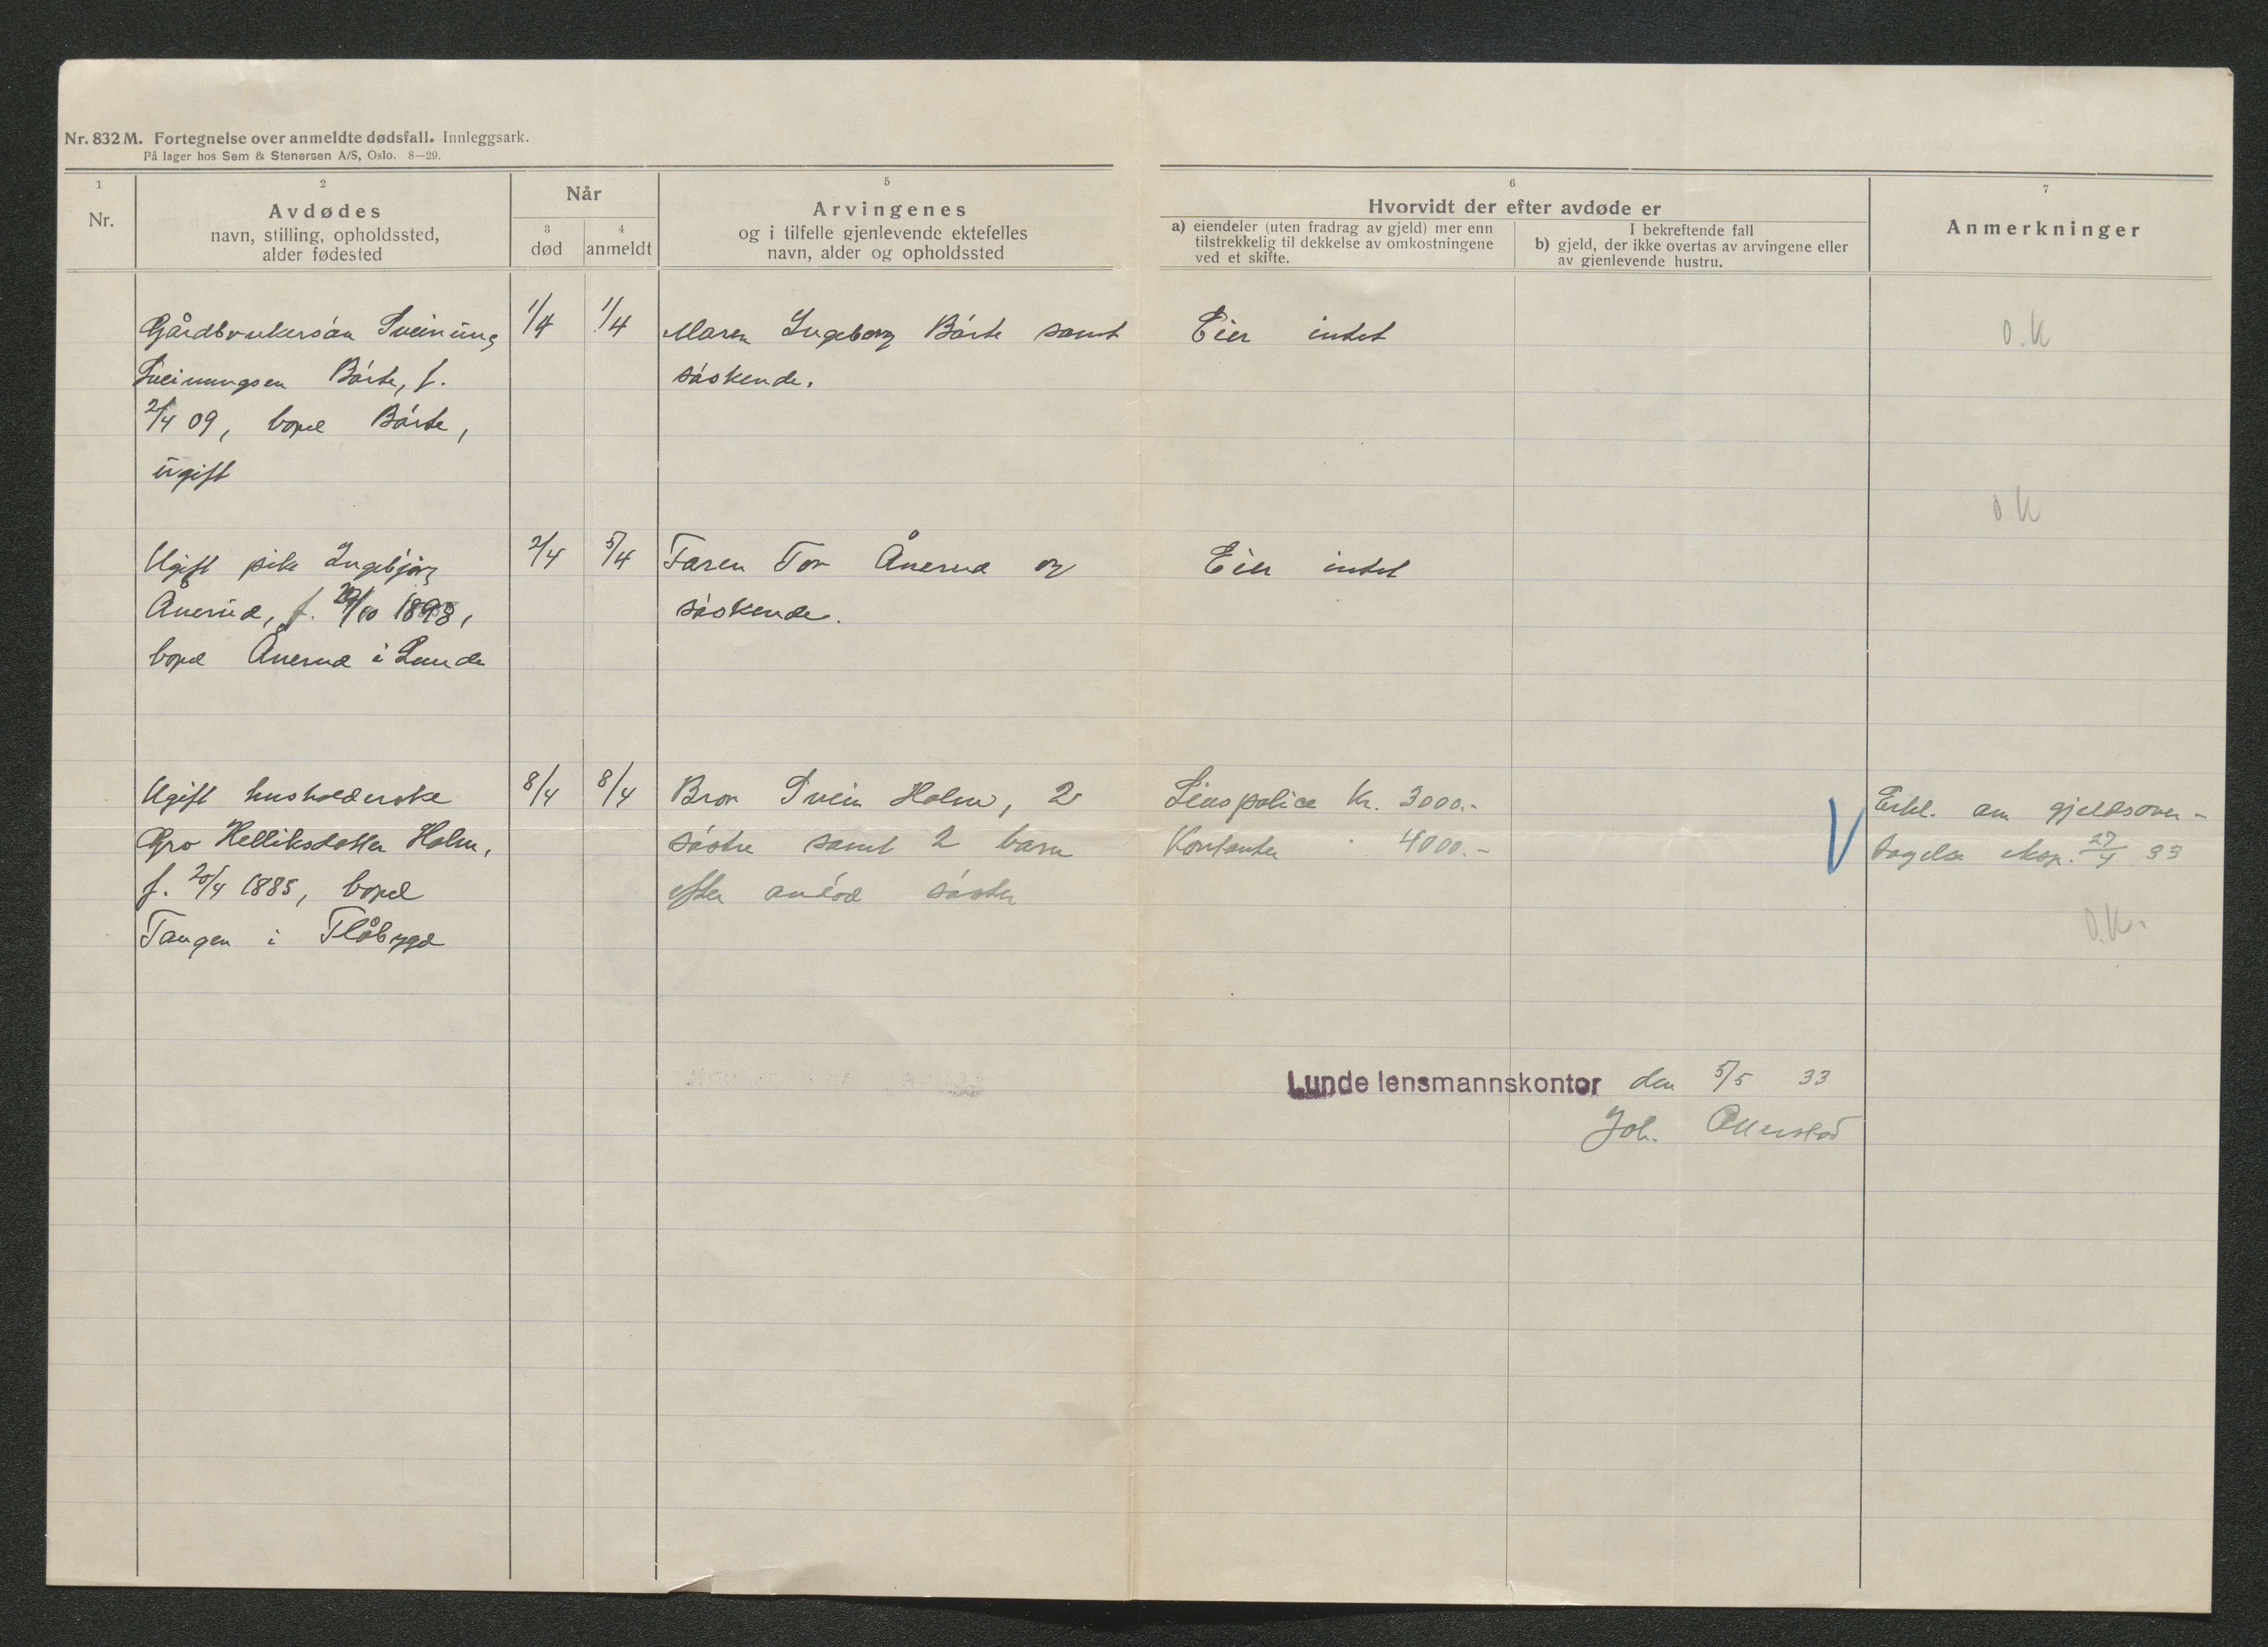 Nr. 832 M. Fortegnelse over anmeldte dødsfall. Innleggsark.
På lager hos Sem & Stenersen A/S, Oslo. 8—29.
1
Nr.
2
Avdødes
navn, stilling, opholdssted,
alder fødested
Når
3
død
4
anmeldt
5
Arvingenes
og i tilfelle gjenlevende ektefelles
navn, alder og opholdssted
6
Hvorvidt der efter avdøde er
a) eiendeler (uten fradrag av gjeld) mer enn
tilstrekkelig til dekkelse av omkostningene
ved et skifte.
I bekreftende fall
b) gjeld, der ikke overtas av arvingene eller
av gjenlevende hustru.
7
Anmerkninger
Gårdbrukersøn Sveinung
Sveinungsen Børte, f.
2/4 09, bopel Børte,
ugift
1/4
1/4
Maren Ingeborg Børte samt
søskende.
Eier intet
O.K
Ugift pike Ingebjørg
Ånerud, f. /10 1893,
bopel Ånerud i Lunde
2/4
5/4
Faren Tor Ånerud og
søskende.
Eier intet
O.K
Ugift husholderske
Gro Helliksdatter Holm,
f. 20/4 1885, bopel
Tangen i Flåbygd
8/4
8/4
Bror Svein Holm, 2
søstre samt 2 barn
efter avdød søster
Livspolice Kr. 3000.-
Kontanter " 4000.-
V
Erkl. om gjeldsover-
tagelse eksp. 27/4 33
O.K.
Lunde lensmannskontor den 5/5 33
Joh.